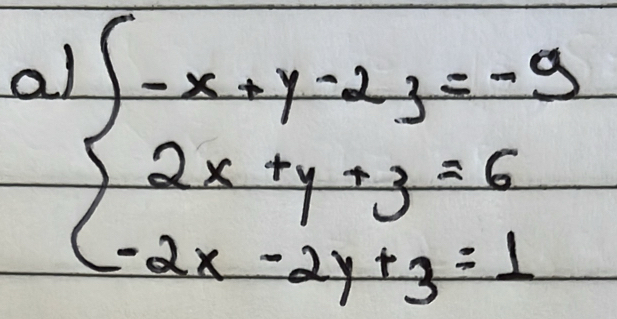 a) { -x + y - 2z = -9
2x + y + z = 6
-2x - 2y + z = 1